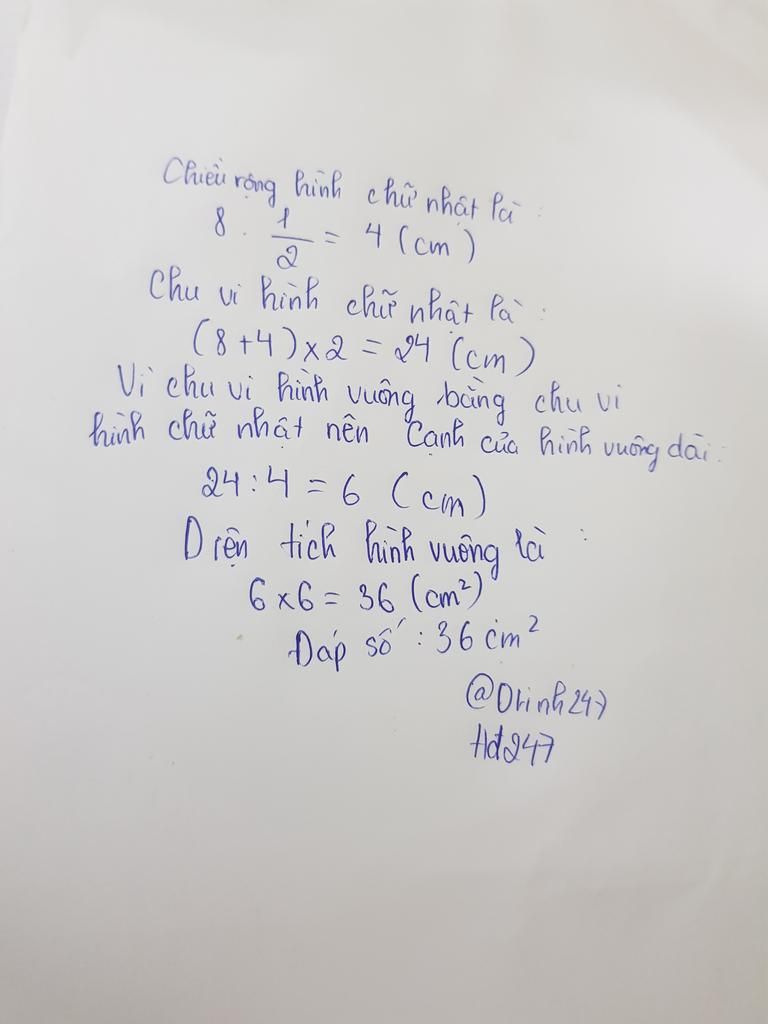 Chiều rộng hình chữ nhật là:
8 . 1/2 = 4 (cm)
Chu vi hình chữ nhật là:
(8+4)×2 = 24 (cm)
Vì chu vi hình vuông bằng chu vi
hình chữ nhật nên cạnh của hình vuông dài:
24:4 = 6 (cm)
Diện tích hình vuông là:
6×6 = 36 (cm²)
Đáp số: 36 cm²
@Dtinh247
Hd247